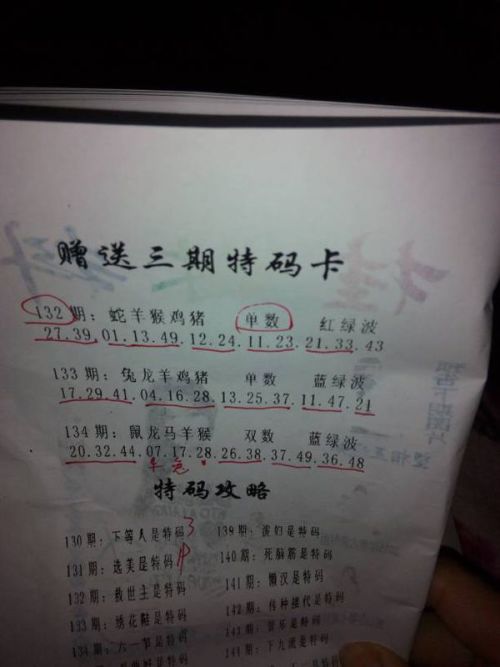 赠送三期特码卡
132期：蛇羊猴鸡猪 单数 红绿波
27.39.01.13.49.12.24.11.23.21.33.43
133期：兔龙羊鸡猪 单数 蓝绿波
17.29.41.04.16.28.13.25.37.11.47.21
134期：鼠龙马羊猴 双数 蓝绿波
20.32.44.07.17.28.26.38.37.49.36.48
特码攻略
130期：下等人是特码 3
139期：波们是特码
131期：选美是特码
140期：死脑筋是特码
132期：救世主是特码
141期：懒汉是特码
133期：绣花鞋是特码
142期：传种接代是特码
134期：六一节是特码
143期：音乐是特码
144期：下九流是特码